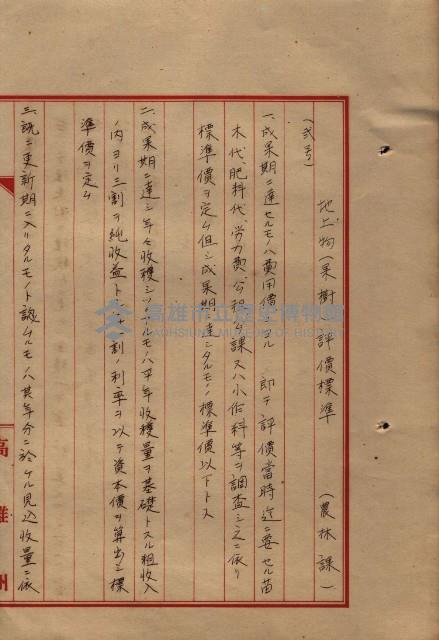 (弐号)
地上物(果樹)評價標準 (農林課)
一、成果期ニ達セルモノハ費用價 即チ評價當時迄ニ要セル苗
木代、肥料代、労力費、公租公課又ハ小作料等ヲ調査シ之ニ依リ
標準價ヲ定ム但シ成果期ニ達シタルモノノ標準價以下トス
二、成果期ニ達シ年々收穫シツヽアルモノハ平年收穫量ヲ基礎トスル粗收入
ノ内ヨリ三割ヲ純收益トシ 割ノ利率ヲ以テ資本價ヲ算出シ標
準價ヲ定ム
三、既ニ更新期ニ入リタルモノト認ムルモノハ其年分ニ於ケル見込收量ニ依
高雄州
高雄市立歷史博物館
KAOHSIUNG MUSEUM OF HISTORY